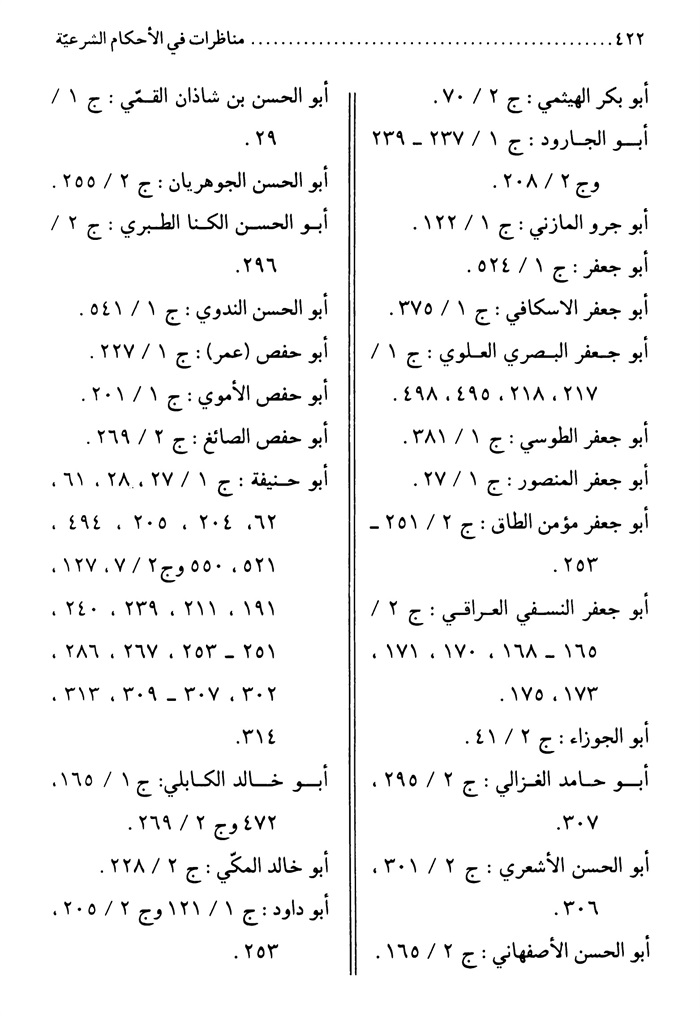 ٤٢٢ ................................................ مناظرات في الأحكام الشرعيّة
أبو بكر الهيثمي : ج ٢ / ٧٠ .
أبـو الجـارود : ج ١ / ٢٣٧ ـ ٢٣٩
وج ٢ / ٢٠٨ .
أبو جرو المازني : ج ١ / ١٢٢ .
أبو جعفر : ج ١ / ٥٢٤ .
أبو جعفر الاسكافي : ج ١ / ٣٧٥ .
أبو جـعفر البـصري العـلوي : ج ١ /
٢١٧ ، ٢١٨ ، ٤٩٥ ، ٤٩٨ .
أبو جعفر الطوسي : ج ١ / ٣٨١ .
أبو جعفر المنصور : ج ١ / ٢٧ .
أبو جعفر مؤمن الطاق : ج ٢ / ٢٥١ ـ
٢٥٣ .
أبو جعفر النسـفي العـراقـي : ج ٢ /
١٦٥ ـ ١٦٨ ، ١٧٠ ، ١٧١ ،
١٧٣ ، ١٧٥ .
أبو الجوزاء : ج ٢ / ٤١ .
أبـو حامـد الغـزالي : ج ٢ / ٢٩٥ ،
٣٠٧ .
أبو الحسن الأشعري : ج ٢ / ٣٠١ ،
٣٠٦ .
أبو الحسن الأصفهاني : ج ٢ / ١٦٥ .
أبو الحسن بن شاذان القـمّي : ج ١ /
٢٩ .
أبو الحسن الجوهريان : ج ٢ / ٢٥٥ .
أبـو الحسـن الكـنا الطـبري : ج ٢ /
٢٩٦ .
أبو الحسن الندوي : ج ١ / ٥٤١ .
أبو حفص (عمر) : ج ١ / ٢٢٧ .
أبو حفص الأموي : ج ١ / ٢٠١ .
أبو حفص الصائغ : ج ٢ / ٢٦٩ .
أبو حـنيفة : ج ١ / ٢٧ ، ٢٨ ، ٦١ ،
٦٢، ٢٠٤ ، ٢٠٥ ، ٤٩٤ ،
٥٢١ ، ٥٥٠ وج٢ / ٧ ، ١٢٧ ،
١٩١ ، ٢١١ ، ٢٣٩ ، ٢٤٠ ،
٢٥١ ـ ٢٥٣ ، ٢٦٧ ، ٢٨٦ ،
٣٠٢ ، ٣٠٧ ـ ٣٠٩ ، ٣١٣ ،
٣١٤ .
أبـو خـالد الكـابلي: ج ١ / ١٦٥،
٤٧٢ وج ٢ / ٢٦٩ .
أبو خالد المكّي : ج ٢ / ٢٢٨ .
أبو داود : ج ١ / ١٢١ وج ٢ / ٢٠٥ ،
٢٥٣ .